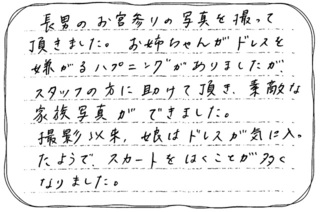 長男のお宮参りの写真を撮って
頂きました。お姉ちゃんがドレスを
嫌がるハプニングがありましたが、
スタッフの方に助けて頂き、素敵な
家族写真ができました。
撮影以来、娘はドレスが気に入っ
たようで、スカートをはくことが多く
なりました。